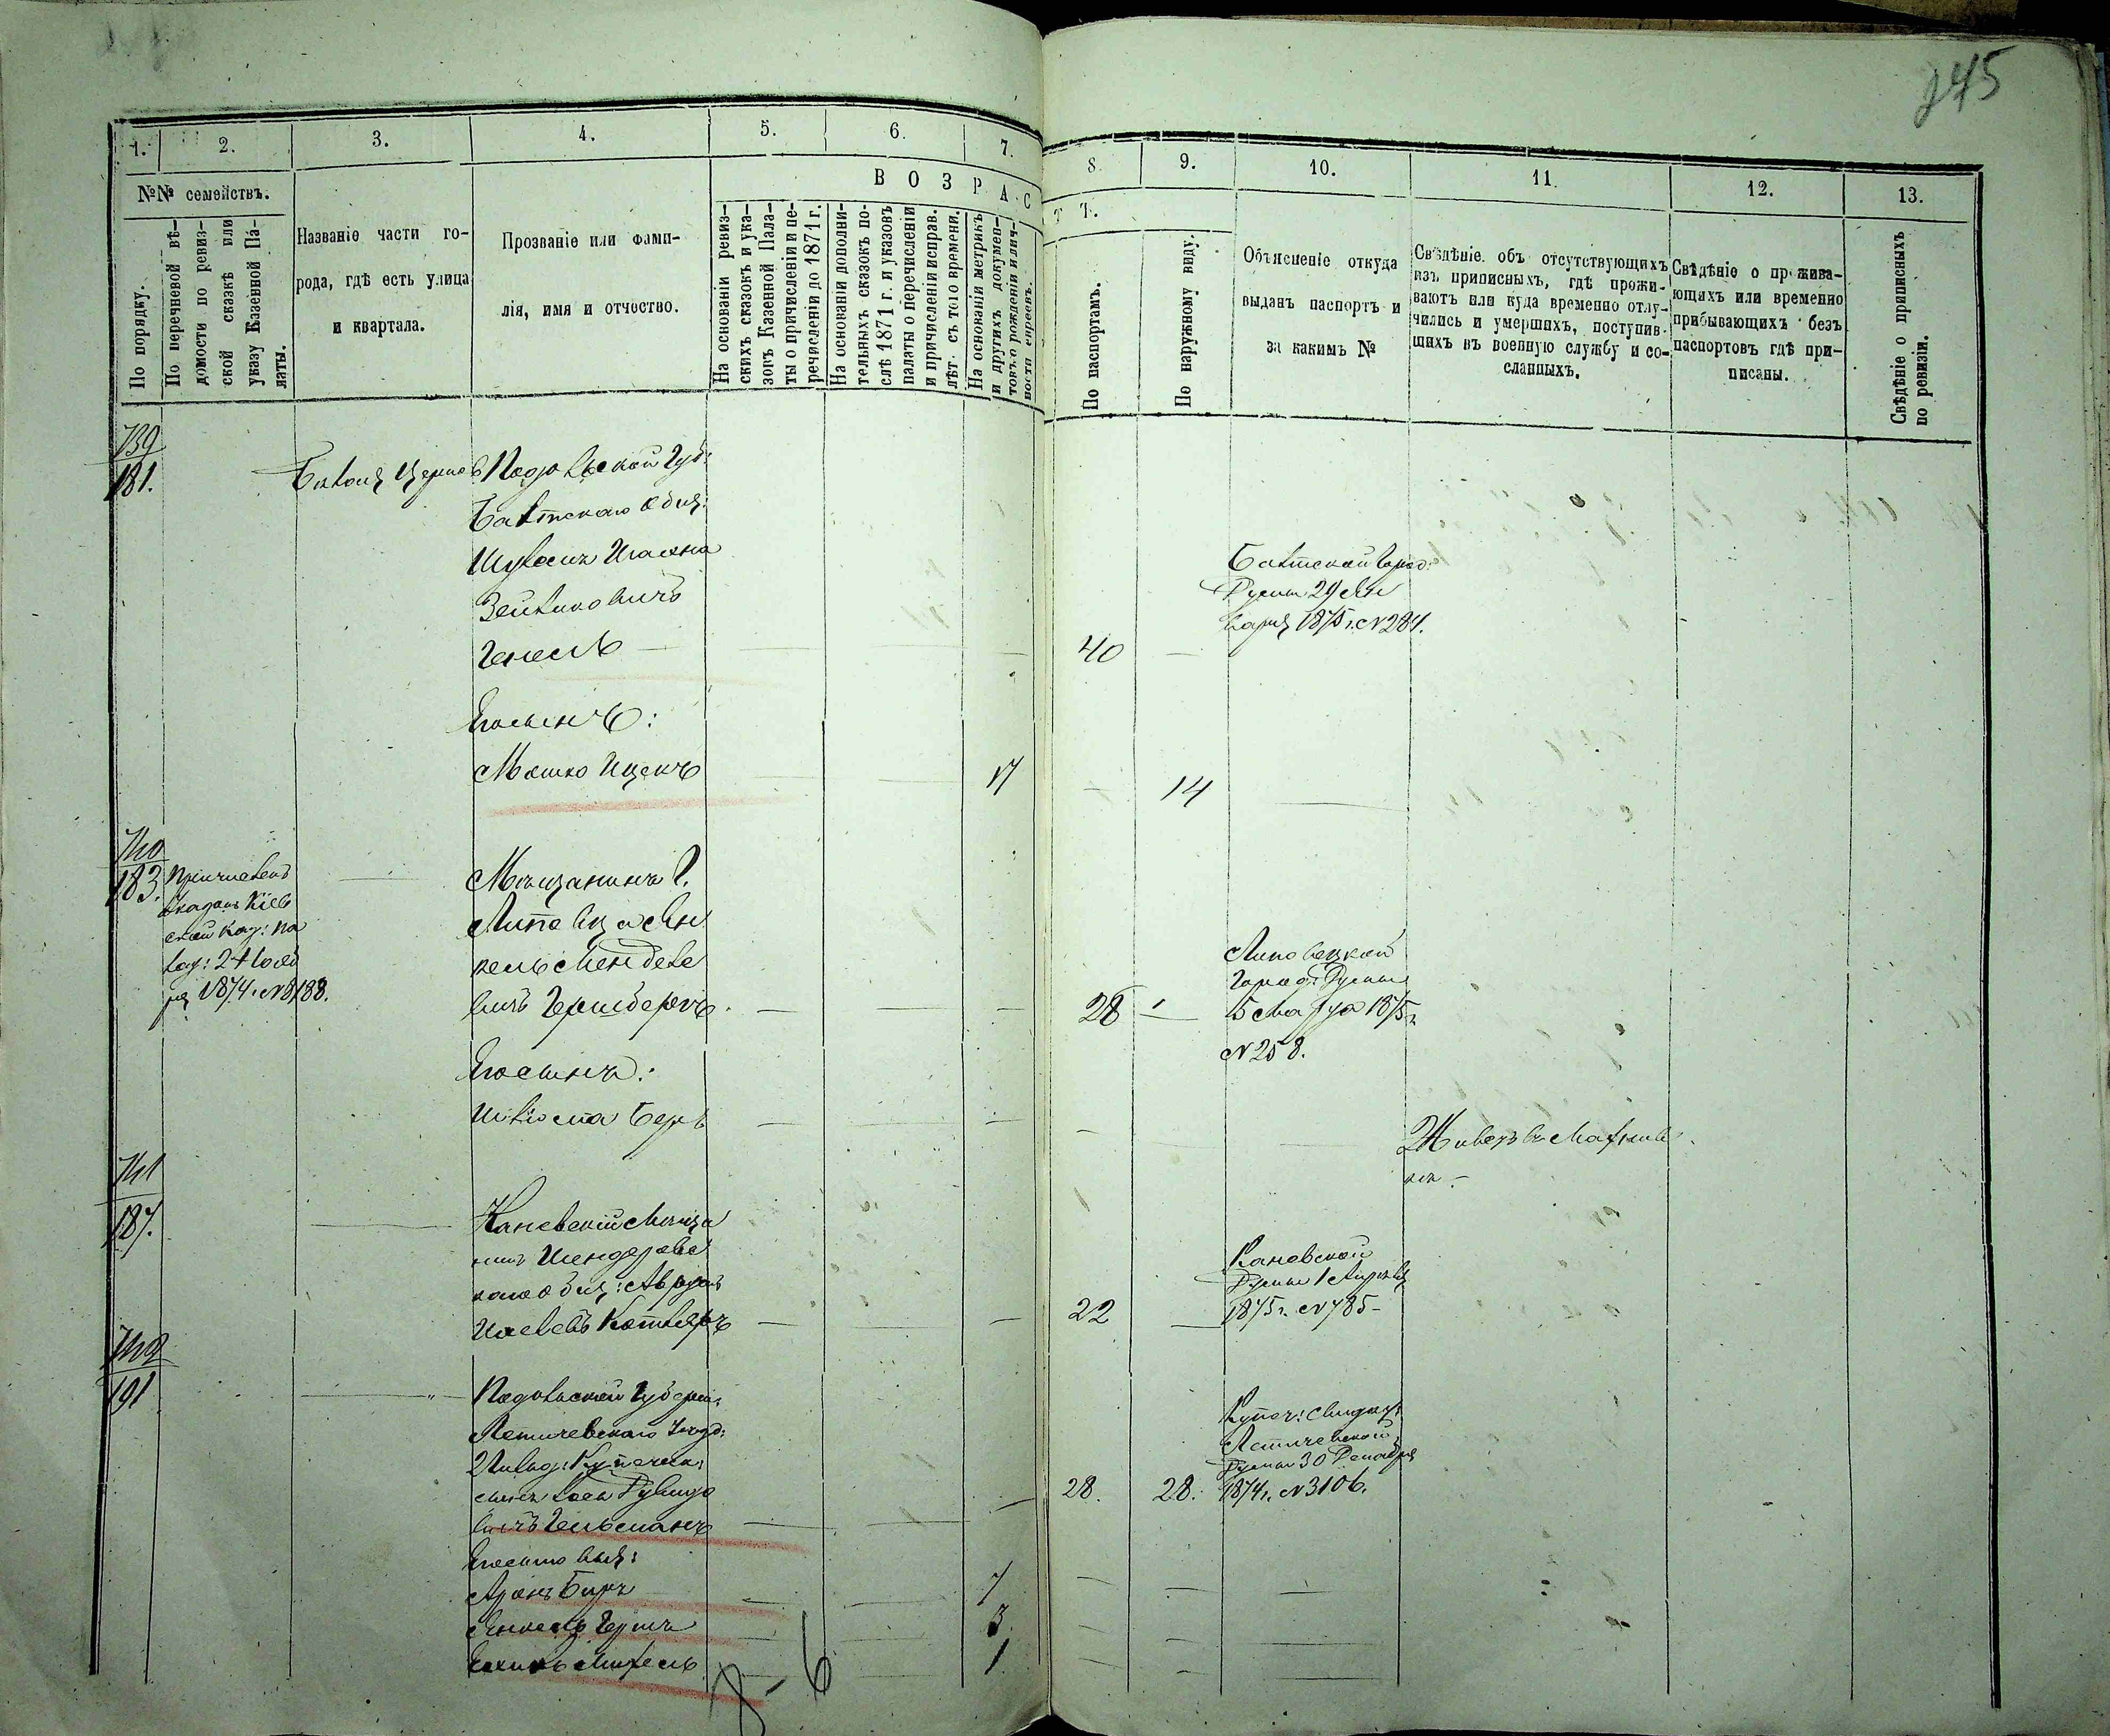 245
1. 2. 3. 4. 5. 6. 7. 8. 9. 10. 11. 12. 13.
№№ семействъ.
В О З Р А С Т Ъ.
По порядку.
По перечневой вѣ-
домости по ревиз-
ской сказкѣ или
указу Казенной Па-
латы.
Названіе части го-
рода, гдѣ есть улица
и квартала.
Прозваніе или фами-
лія, имя и отчество.
На основаніи ревиз-
скихъ сказокъ и ука-
зокъ Казенной Пала-
ты о причисленіи и пе-
речисленіи до 1871 г.
На основаніи дополни-
тельныхъ сказокъ по-
слѣ 1871 г. и указовъ
палаты о перечисленіи
и причисленіи исправ.
лѣт. съ того времени.
На основаніи метрикъ
и другихъ докумен-
товъ о рожденіи и лич-
ности евреевъ.
По паспортамъ.
По наружному виду.
Объясненіе откуда
выданъ паспортъ и
за какимъ №
Свѣдѣніе объ отсутствующихъ
изъ приписныхъ, гдѣ прожи-
ваютъ или куда временно отлу-
чились и умершихъ, поступив-
шихъ въ военную службу и со-
сланныхъ.
Свѣдѣніе о прожива-
ющихъ или временно
прибывающихъ безъ
паспортовъ гдѣ при-
писаны.
Свѣдѣніе о приписныхъ
по ревизіи.
739
181.
Бѣлая Церковь
Подольской Губ:
Балтскаго Общ:
Зейликовичъ
40
Балтской Город:
Думы 29 Ян
варя 1875 г. № 284.
Его сынъ:
Мошко Ицекъ
17 14
740
183.
Причисленъ
Указомъ Кіев
ской Каз: Па
лат: 24
1874 г. № 8188.
Мѣщанинъ г.
Липовца Ян
кель Менделе
вичъ Гершбергъ
28
Липовецкой
Город: Думы
5 Марта 1875 г.
№ 258.
Его сынъ:
Шлiома Беръ
Живетъ въ Махнов
кѣ
741
187.
Каневскій Мѣща
нинъ Шендеров
каго Общ: Аврумъ
Котляръ
22
Каневской
Думы 1 Апрѣля
1875 г. № 785
742
191
Подольской Губерніи
Летичевскаго Уѣзда:
Купеческ:
сынъ
вичъ Гельманъ
28. 28.
Купеч: Свидѣт:
Летичевской
Думы 30 Декабря
1874 г. № 3106.
Его сыновья:
Аронъ Беръ
7
Янкель Гершъ
3
1
7 - 6